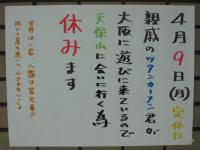 4月9日(月)定休日
親戚のツタンカーメン君が
大阪に遊びに来ているので
天保山に会いに行く為
休みます
世界は一家、人類は皆兄弟!!